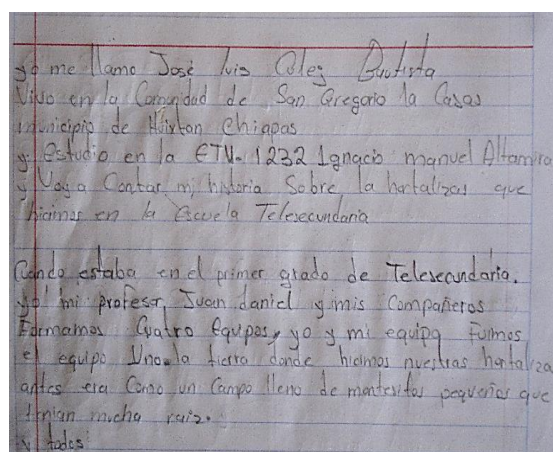 yo me llamo José luis Coleg Bautista
Vivo en la Comonidad de San Gregorio la Casas
municipio de Huixtan Chiapas
y Estudio en la ETV. 1232 Ignacio manuel Altamira
y Voy a Contar mi historia Sobre la hortalizas que
hicimos en la Escuela Telesecundaria
Cuando estaba en el primer grado de Telesecundaria.
yo mi profesor Juan daniel y mis Compañeros
Formamos Cuatro Equipos, yo y mi equipo Fuimos
el equipo Uno. la tierra donde hicimos nuestras hortaliza
antes era Como un Campo lleno de montesitos pequeños que
tenian mucha raiz.
y todos